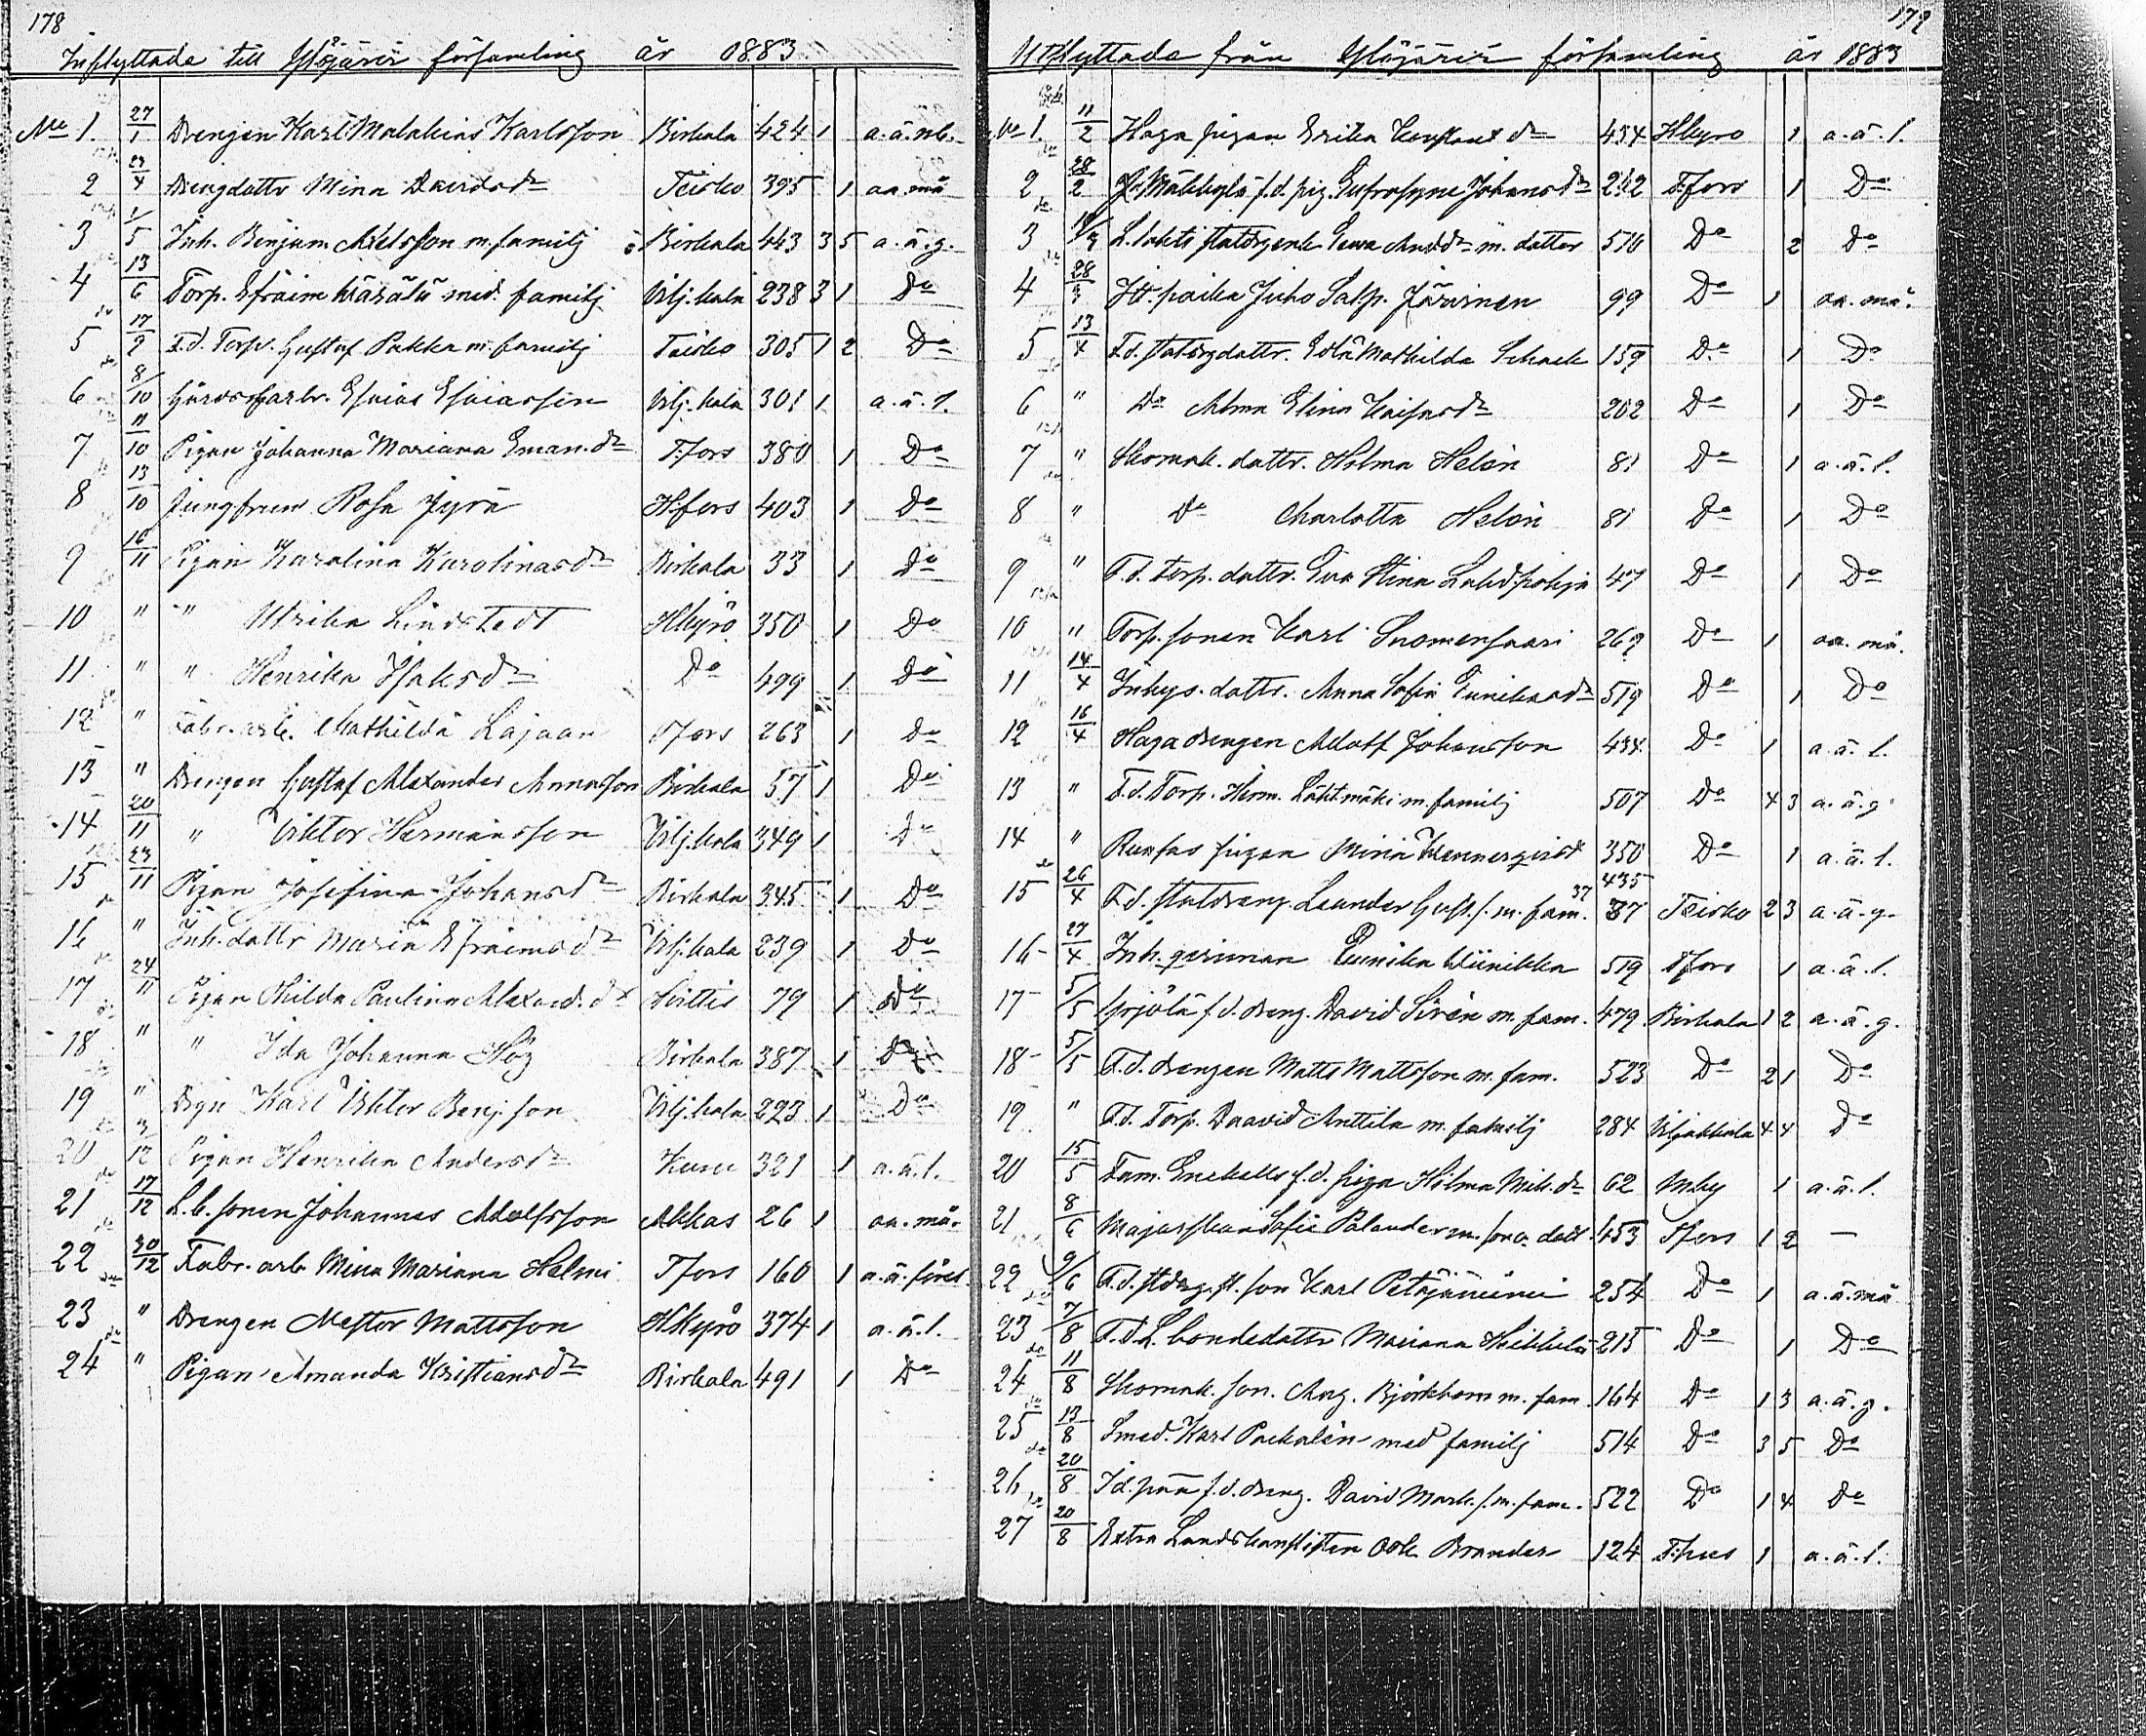 178
Inflyttade till Ylöjärvi församling år 1883.
No 1 27/1 Drengen Karl Malakias Karlsson Birkala 424 1 a.ä.nb.
2 23/4 Drengdottr Mina Davidsdr Teisko 395 1 aa. må
3 1/5 Inh. Benjam. Axelsson m. familj Birkala 443 3 5 a.ä.g.
4 13/6 Torp. Efraim med. familj Vilj.kala 238 3 1 Do
5 17/9 F.d. Torp. Gustaf Pakka m. familj Teisko 305 1 2 Do
6 8/10 Esaias Esaiasson Vilj.kala 301 1 a.ä.l.
7 11/10 Pigan Johanna Mariana Eman.dr T.fors 380 1 Do
8 13/10 Jungfrun Rosa Jyrä H.fors 403 1 Do
9 16/11 Pigan Karolina Karolinasdr Birkala 33 1 Do
10 " " Ulrika Lindstedt H.kyro 350 1 Do
11 " " Henrika Isaksdr Do 499 1 Do
12 " Fabr.arb. Mathilda Lajaan T.fors 263 1 Do
13 " Drengen Gustaf Alexander Annasson Birkala 57 1 Do
14 20/11 " Viktor Hermansson Vilj.kala 349 1 Do
15 23/11 Pigan Josefina Johansdr Birkala 345 1 Do
16 " Inh. dottr Maria Efraimsdr Vilj.kala 239 1 Do
17 24/11 Pigan Hilda Paulina Alexand.dr 79 1 Do
18 " " Ida Johanna Hög Birkala 387 1 Do
19 " Drgn Karl Viktor Benj.son Vilj.kala 223 1 Do
20 3/12 Pigan Henrika Andersdr Kuru 321 1 a.ä.l.
21 17/12 L.b. sonen Johannes Adolfsson Akkas 26 1 aa. må.
22 30/12 Fabr. arb Mina Mariana Helmi T.fors 160 1 a.ä.
23 " Drengen Nestor Mattsson H.kyrö 374 1 a.ä.l.
24 " Pigan Amanda Kristiansdr Birkala 491 1 Do
179
Utflyttade från Ylöjärvi församling år 1883
No 1. 11/2 Haga pigan Erika Konstant.dr 434 H.kyro 1 a.ä.l.
2 28/2 f.d. pig. Eufrosyne Johansdr 242 T.fors 1 Do
3 Eewa And.dr m. dotter 510 Do 2 Do
4 28/3 Juho Salp. Järvinen 99 Do 1 aa. må.
5 13/4 F.d. Mathilda Schack 159 Do 1 Do
6 " Do Alma Elina 202 Do 1 Do
7 " Skomak. dottr. Hilma Helén 81 Do 1 a.ä.l.
8 " Do Charlotta Helén 81 Do 1 Do
9 " F.d. Torp. dottr. Eva Stina 47 Do 1 Do
10 " Torp. sonen Karl Suomensaari 269 Do 1 aa. må.
11 14/4 Inhys. dottr. Anna Sofia Eunikasdr 519 Do 1 Do
12 16/4 Haga drengen Adolf Johansson 434 Do 1 a.ä.l.
13 " F.d. Torp. Herm. Lähtmäki m. familj 507 Do 4 3 a.ä.g.
14 " pigan Mina Wennerqvist 350 Do 1 a.ä.l.
15 26/4 F.d. statdreng. Leander Gust.s. m. fam. 37 435 37 Teisko 2 3 a.ä.g.
16 27/4 Inh. qvinnan Eunika Wiinikka 519 T.fors 1 a.ä.l.
17 5/5 Yrjölä f.d. dreng. David Sirén m. fam. 479 Birkala 1 2 a.ä.g.
18 5/5 F.d. drengen Matts Mattsson m. fam. 523 Do 2 1 Do
19 " F.d. Torp. Daavid Anttila m. familj 284 Viljakkala 4 4 Do
20 15/5 f.d. piga Hilma Mik.dr 62 Mby 1 a.ä.l.
21 8/6 Majorskan Sofie Palander m. son o. dott. 453 T.fors 1 2 —
22 9/6 F.d. son Karl Petäjäniemi 254 Do 1 a.ä. må
23 7/8 F.d. L. bondedottr Mariana Heikkilä 215 Do 1 Do
24 11/8 Skomak. son. Aug. Björkbom m. fam. 164 Do 1 3 a.ä.g.
25 13/8 Smed. Karl Packalén med familj 514 Do 3 5 Do
26 20/8 f.d. dreng. David Mark.s. m. fam. 522 Do 1 4 Do
27 20/8 Extra Landskanslisten Osk. Brander 124 T.hus 1 a.ä.l.